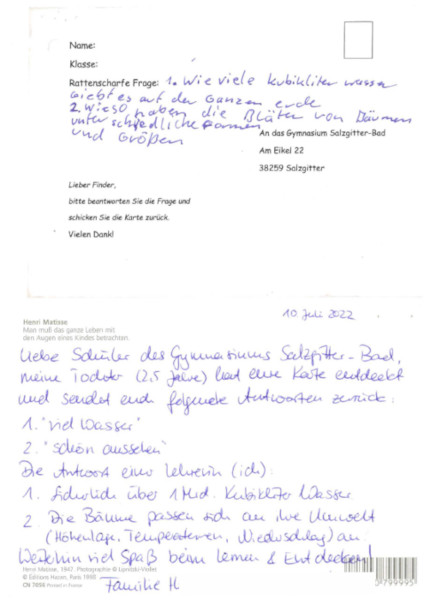 Name:
Klasse:
Rattenscharfe Frage: 1. Wie viele kubikliter wasser
giebt es auf der Ganzen erde
2. wieso haben die Bläter von Bäumen
unterschiedliche Formen
und Größen
An das Gymnasium Salzgitter-Bad
Am Eikel 22
38259 Salzgitter
Lieber Finder,
bitte beantworten Sie die Frage und
schicken Sie die Karte zurück.
Vielen Dank!
10 Juli 2022
Henri Matisse
Man muß das ganze Leben mit
den Augen eines Kindes betrachten.
Liebe Schüler des Gymnasiums Salzgitter-Bad,
meine Tochter (2,5 Jahre) hat eine Karte entdeckt
und sendet euch folgende Antworten zurück:
1. "viel Wasser"
2. "schön aussehen"
Die Antwort einer Lehrerin (ich):
1. Sicherlich über 1 Mrd. Kubikliter Wasser
2 Die Bäume passen sich an ihre Umwelt
(Höhenlage, Temperaturen, Niederschlag) an.
Weiterhin viel Spaß beim lernen & Entdecken!
Familie H
Henri Matisse, 1947. Photographie ©
© Éditions Hazan, Paris 1998
CN 7098 Printed in France
3799995